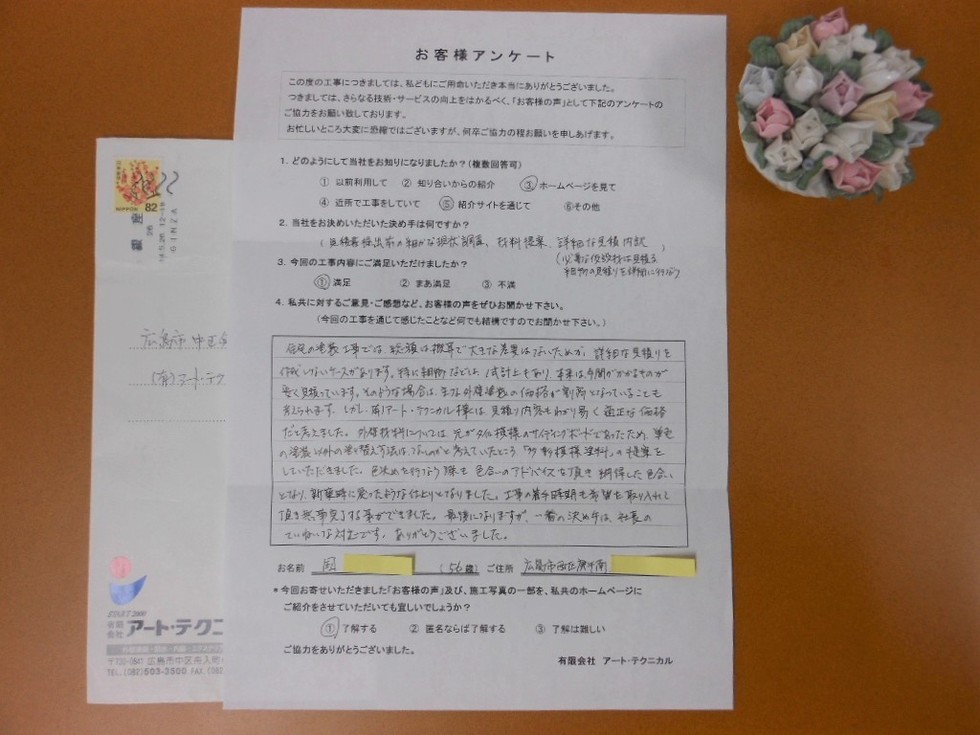 お客様アンケート
この度の工事につきましては、私どもにご用命いただき本当にありがとうございました。
つきましては、さらなる技術・サービスの向上をはかるべく、「お客様の声」として下記のアンケートの
ご協力をお願い致しております。
お忙しいところ大変に恐縮ではございますが、何卒ご協力の程お願いを申しあげます。
1. どのようにして当社をお知りになりましたか？(複数回答可)
① 以前利用して ② 知り合いからの紹介 ③ ホームページを見て
④ 近所で工事をしていて ⑤ 紹介サイトを通じて ⑥その他
2. 当社をお決めいただいた決め手は何ですか？
(見積書提出前の細かな現状調査、材料提案、詳細な見積内訳
3. 今回の工事内容にご満足いただけましたか？
① 満足 ② まあ満足 ③ 不満
4. 私共に対するご意見・ご感想など、お客様の声をぜひお聞かせ下さい。
(今回の工事を通じて感じたことなど何でも結構ですのでお聞かせ下さい。)
住宅の塗装工事では、総額は概算で大きな差異はないためか、詳細な見積りを
作成しないケースがあります。特に細部などは、1式計上もあり、本来は手間がかかるものが
安く見積っています。そのような場合は、主な外壁塗装の価格が割高となっていることも
考えられます。しかし、(有)アート・テクニカル様は、見積り内容もわかり易く適正な価格
だと考えました。外壁材料については、元がタイル模様のサイディングボードであったため、単色
の塗装以外の塗り替え方法はないものかと考えていたところ「多彩模様塗料」の提案を
していただきました。色決めを行なう際も色合いのアドバイスを頂き納得した色合い
となり、新築時に戻ったような仕上りとなりました。工事の着手時期も希望を取り入れて
頂き無事完了する事ができました。最後になりますが、一番の決め手は、社長の
ていねいな対応です。ありがとうございました。
お名前 (56歳) ご住所 広島市西区庚午南
＊今回お寄せいただきました「お客様の声」及び、施工写真の一部を、私共のホームページに
ご紹介をさせていただいても宜しいでしょうか？
① 了解する ② 匿名ならば了解する ③ 了解は難しい
ご協力をありがとうございました。
有限会社 アート・テクニカル
NIPPON 82
銀座
GINZA
広島市中区
(有)アートテク
START 2000
有限会社 アート・テクニ
TEL.(082)503-3500 FAX